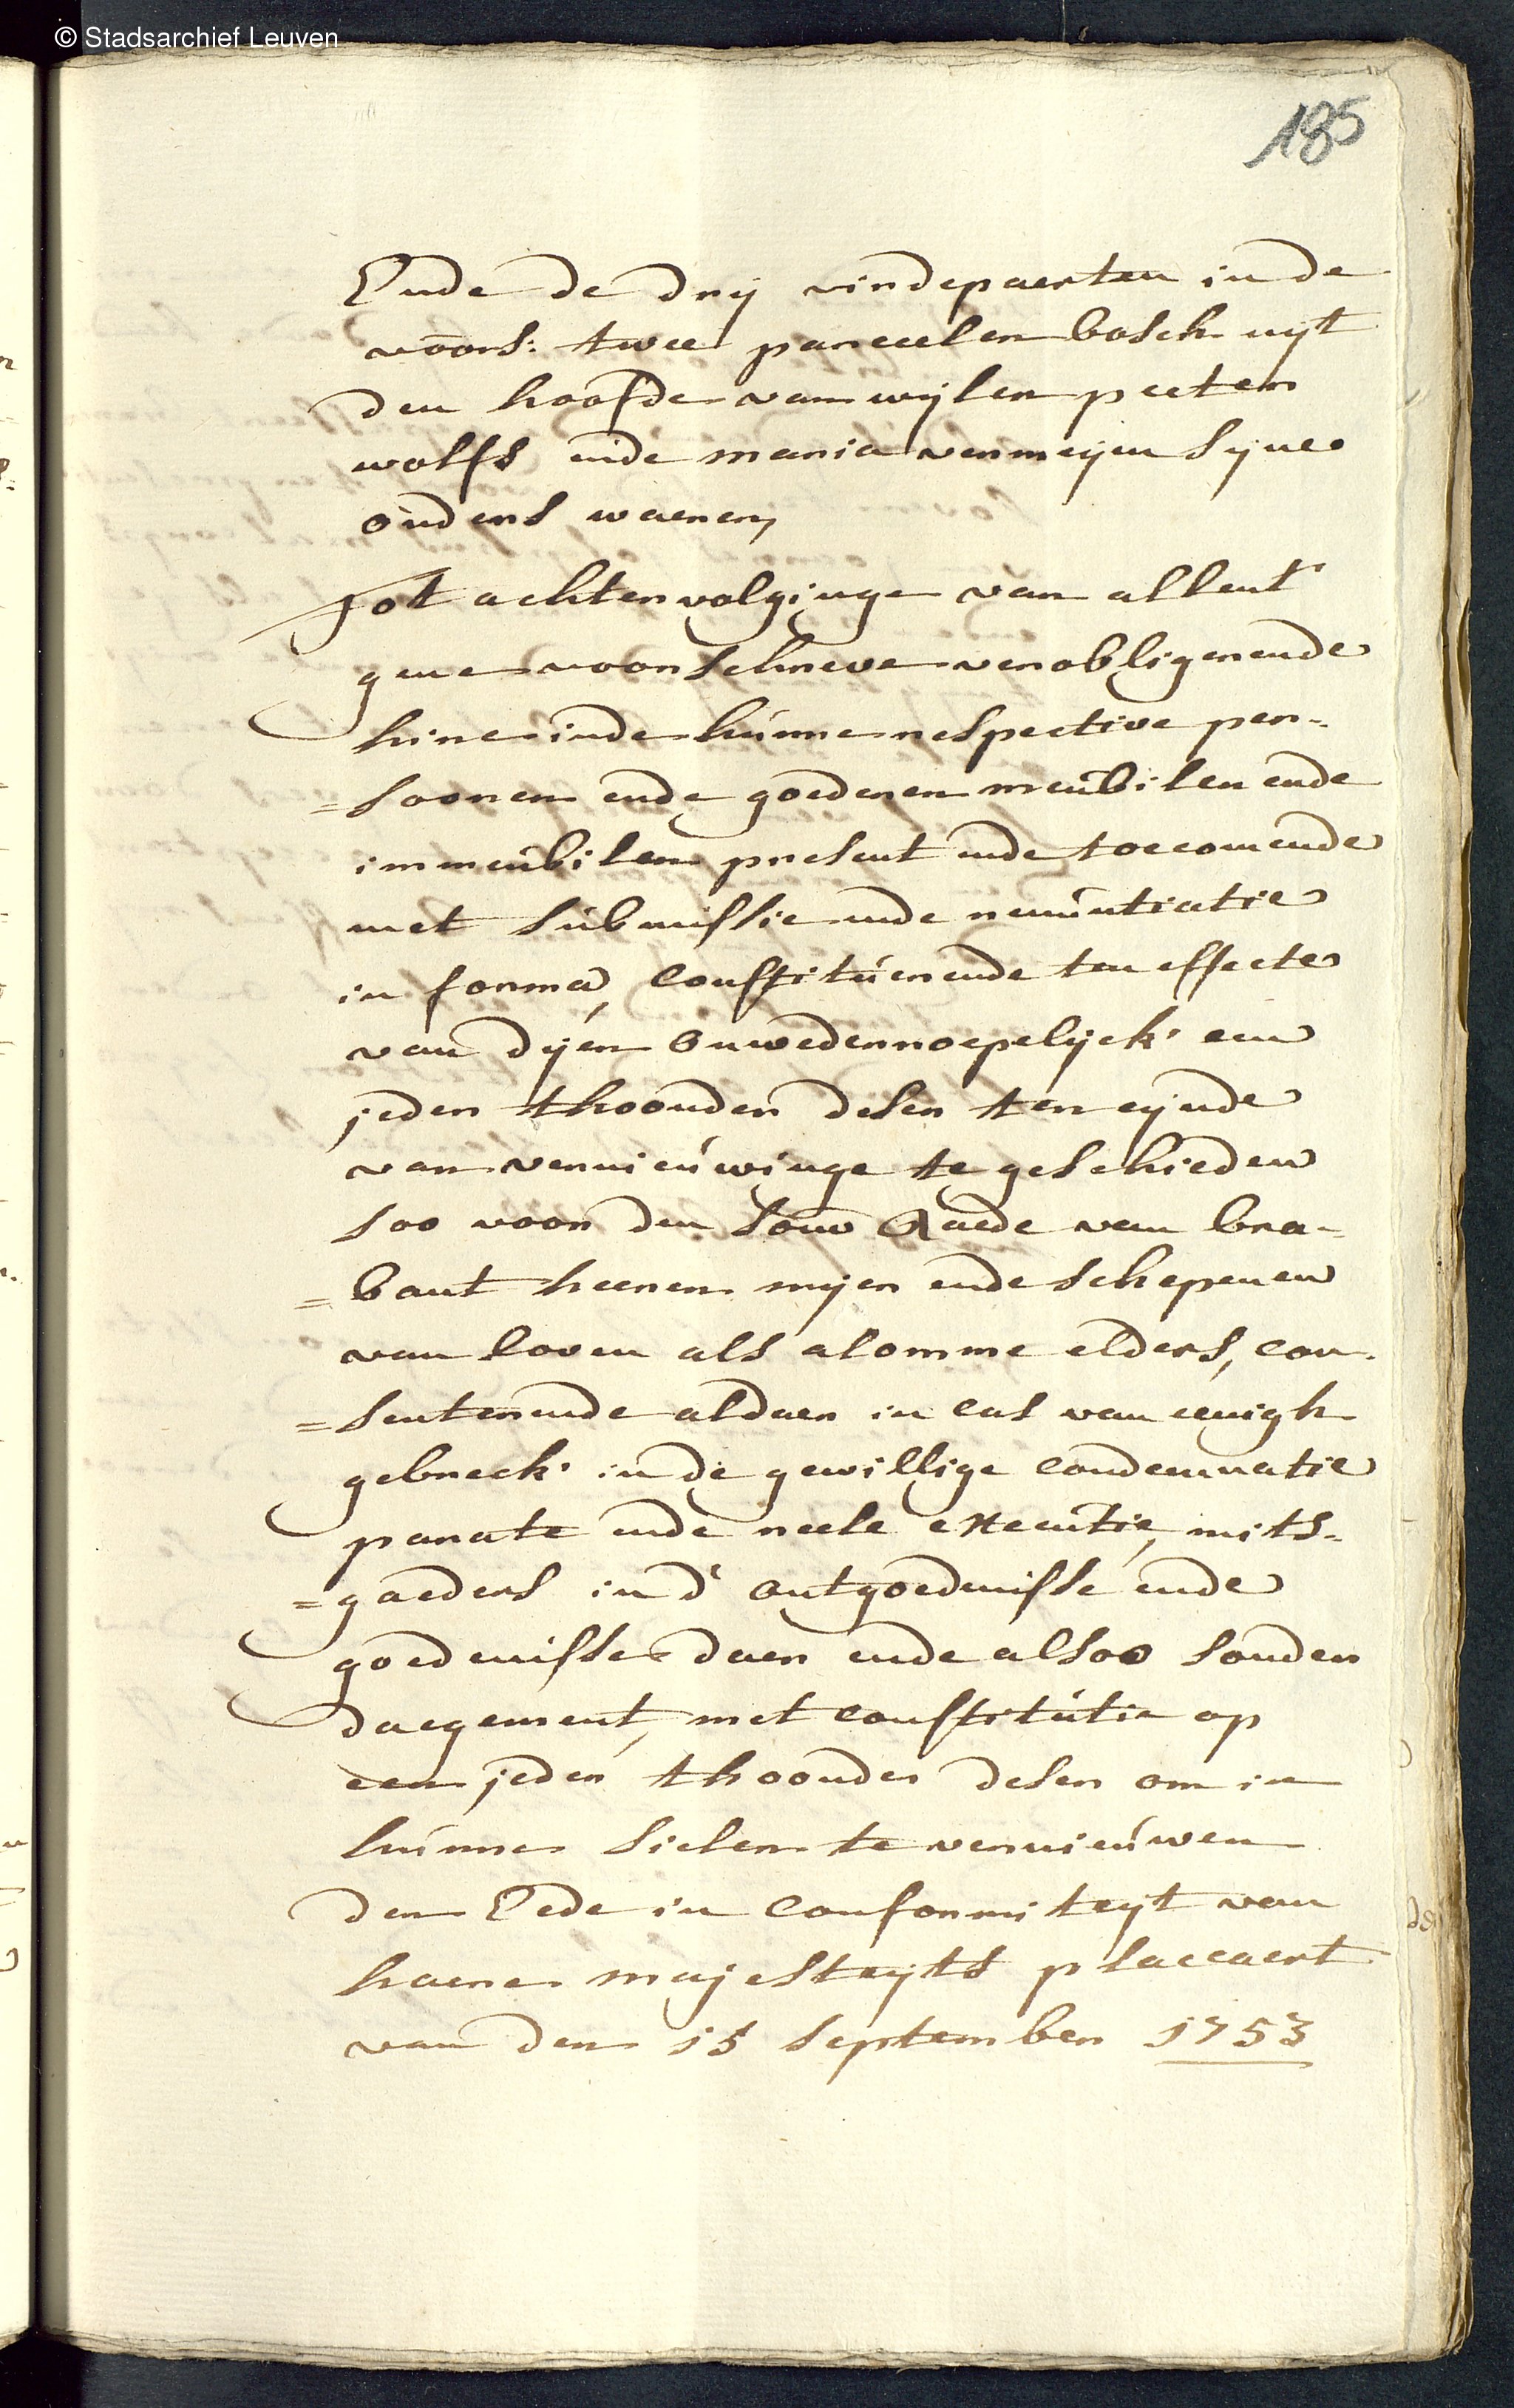 © Stadsarchief Leuven
185
Ende de drij vierdepaerten in de
voors: twee parceelen bosch uijt
den hoofde van wijlen peeter
wolfs ende maria vermeijen sijne
ouders waeren,
Tot achtervolginge van allent
gene voorschreve verobligerende
hinc inde hunne respective per-
=soonen ende goederen meubilen ende
immeubilen present ende toecomende
met submissie ende renuntiatie
in forma, constituerende ten effecte
van dijen onwederroepelijck een
jeder thoonder deser ten eijnde
van vernieuwinge te geschieden
soo voor den souv Raede van bra-
=bant heeren mijer ende schepenen
van loven als alomme elders, con-
=senterende aldaer in cas van eenigh
gebreck in de gewillige condemnatie
parate ende reele executie, mits-
=gaeders in d' ontgoedenisse ende
goedenisse daer ende alsoo sonder
daegement, met constitutie op
een jeder thoonder deser om in
hunne sielen te vernieuwen
den Eede in conformiteijt van
haere majesteijts placcaert
van den 15 september 1753